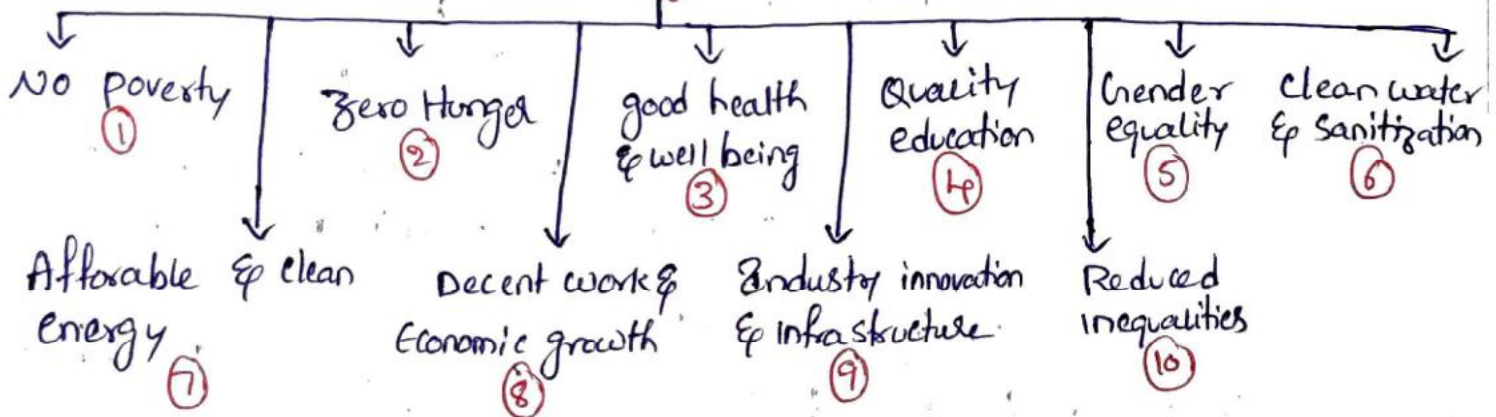 No poverty
①
Zero Hunger
②
good health
& well being
③
Quality
education
④
Gender
equality
⑤
Clean water
& Sanitization
⑥
Afforable & clean
energy
⑦
Decent work &
Economic growth
⑧
Industry innovation
& infrastructure
⑨
Reduced
inequalities
⑩